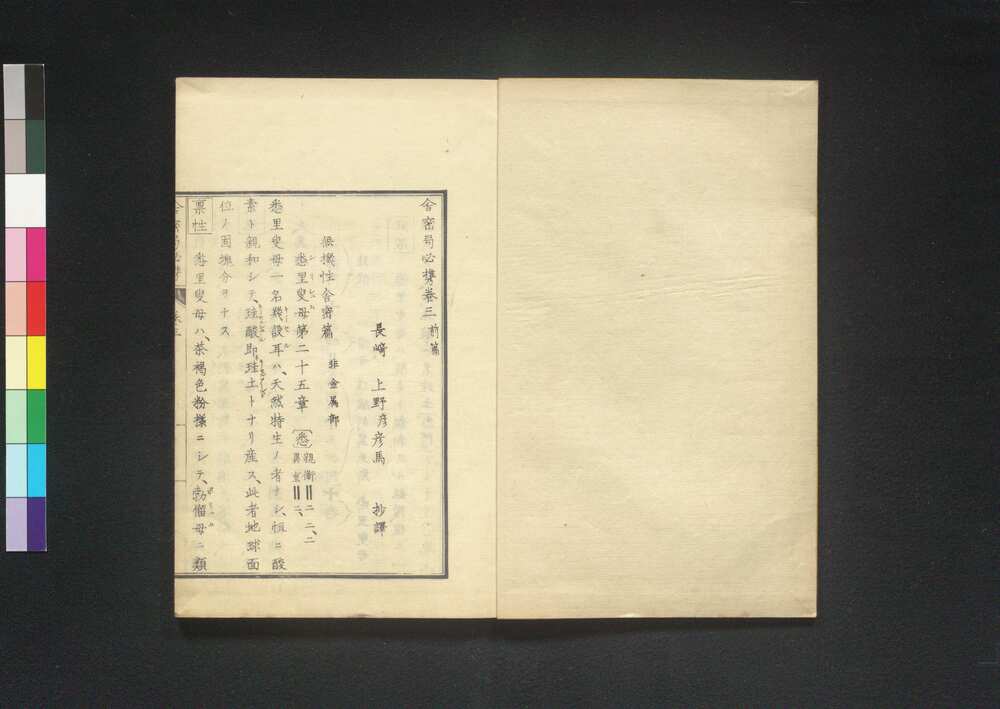 舎密局必携巻三 前篇
長崎 上野彦馬 抄譯
無機性舎密篇 非金属部
悉里叟母第二十五章 (悉) 親衡‖二二、二 異重‖二、
悉里叟母一名幾設耳ハ、天然特生ノ者ナシ、恒ニ酸
素ト親和シテ、珪酸即珪土トナリ産ス、此者地球面
位ノ固塊分ヲナス
稟性 悉里叟母ハ、茶褐色粉様ニシテ、勃㑠母ニ類
舎密局必携 巻三